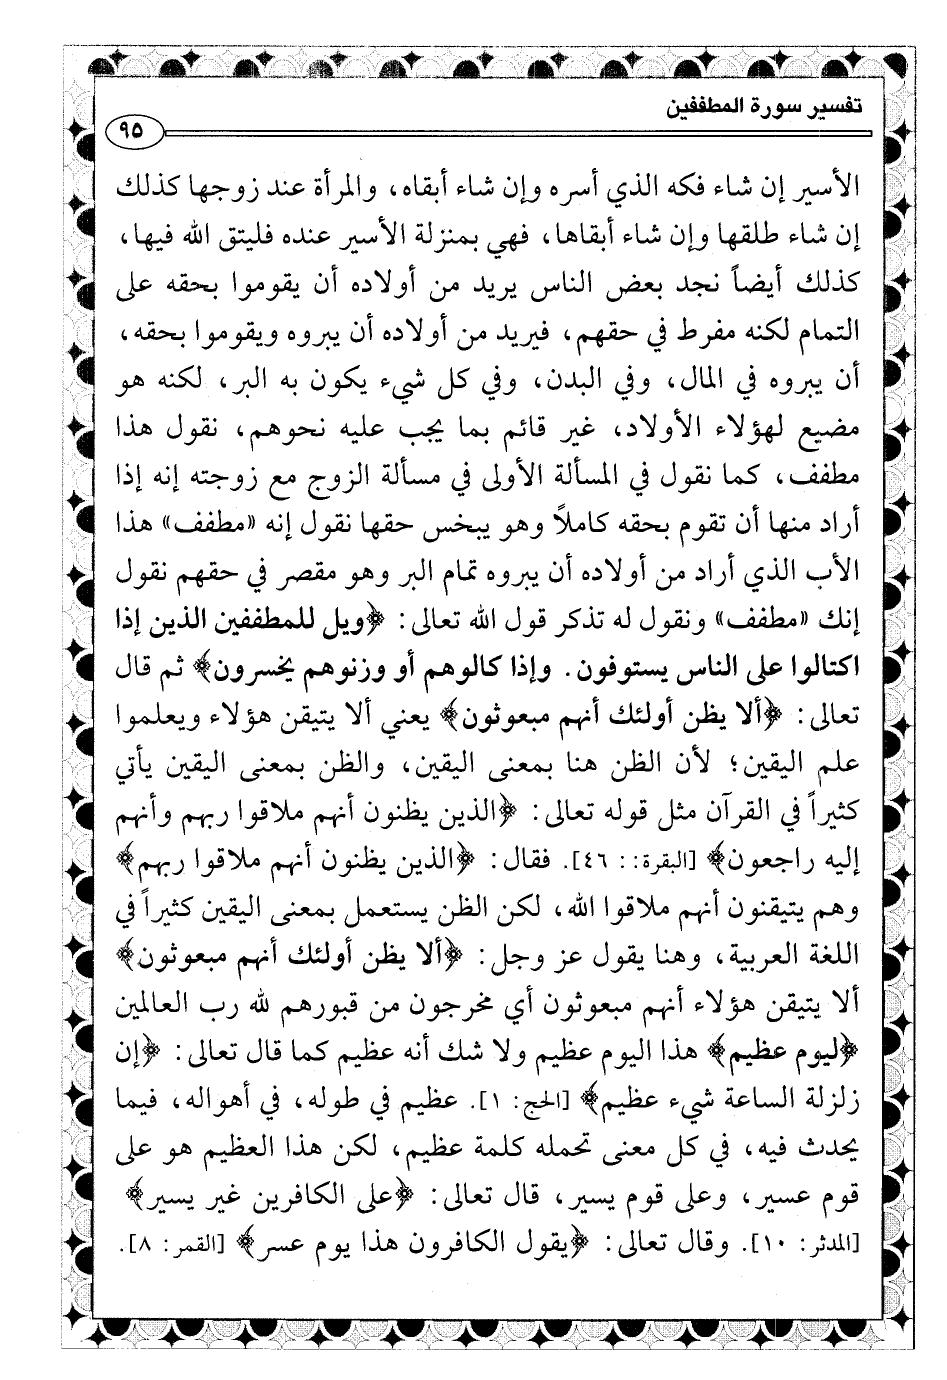 تفسير سورة المطففين
٩٥
الأسير إن شاء فكه الذي أسره وإن شاء أبقاه، والمرأة عند زوجها كذلك
إن شاء طلقها وإن شاء أبقاها، فهي بمنزلة الأسير عنده فليتق الله فيها،
كذلك أيضاً نجد بعض الناس يريد من أولاده أن يقوموا بحقه على
التمام لكنه مفرط في حقهم، فيريد من أولاده أن يبروه ويقوموا بحقه،
أن يبروه في المال، وفي البدن، وفي كل شيء يكون به البر، لكنه هو
مضيع لهؤلاء الأولاد، غير قائم بما يجب عليه نحوهم، نقول هذا
مطفف، كما نقول في المسألة الأولى في مسألة الزوج مع زوجته إنه إذا
أراد منها أن تقوم بحقه كاملاً وهو يبخس حقها نقول إنه «مطفف» هذا
الأب الذي أراد من أولاده أن يبروه تمام البر وهو مقصر في حقهم نقول
إنك «مطفف» ونقول له تذكر قول الله تعالى: ﴿ويل للمطففين الذين إذا
اكتالوا على الناس يستوفون. وإذا كالوهم أو وزنوهم يخسرون﴾ ثم قال
تعالى: ﴿ألا يظن أولئك أنهم مبعوثون﴾ يعني ألا يتيقن هؤلاء ويعلموا
علم اليقين؛ لأن الظن هنا بمعنى اليقين، والظن بمعنى اليقين يأتي
كثيراً في القرآن مثل قوله تعالى: ﴿الذين يظنون أنهم ملاقوا ربهم وأنهم
إليه راجعون﴾ [البقرة:: ٤٦]. فقال: ﴿الذين يظنون أنهم ملاقوا ربهم﴾
وهم يتيقنون أنهم ملاقوا الله، لكن الظن يستعمل بمعنى اليقين كثيراً في
اللغة العربية، وهنا يقول عز وجل: ﴿ألا يظن أولئك أنهم مبعوثون﴾
ألا يتيقن هؤلاء أنهم مبعوثون أي مخرجون من قبورهم لله رب العالمين
﴿ليوم عظيم﴾ هذا اليوم عظيم ولا شك أنه عظيم كما قال تعالى: ﴿إن
زلزلة الساعة شيء عظيم﴾ [الحج: ١]. عظيم في طوله، في أهواله، فيما
يحدث فيه، في كل معنى تحمله كلمة عظيم، لكن هذا العظيم هو على
قوم عسير، وعلى قوم يسير، قال تعالى: ﴿على الكافرين غير يسير﴾
[المدثر: ١٠]. وقال تعالى: ﴿يقول الكافرون هذا يوم عسر﴾ [القمر: ٨].